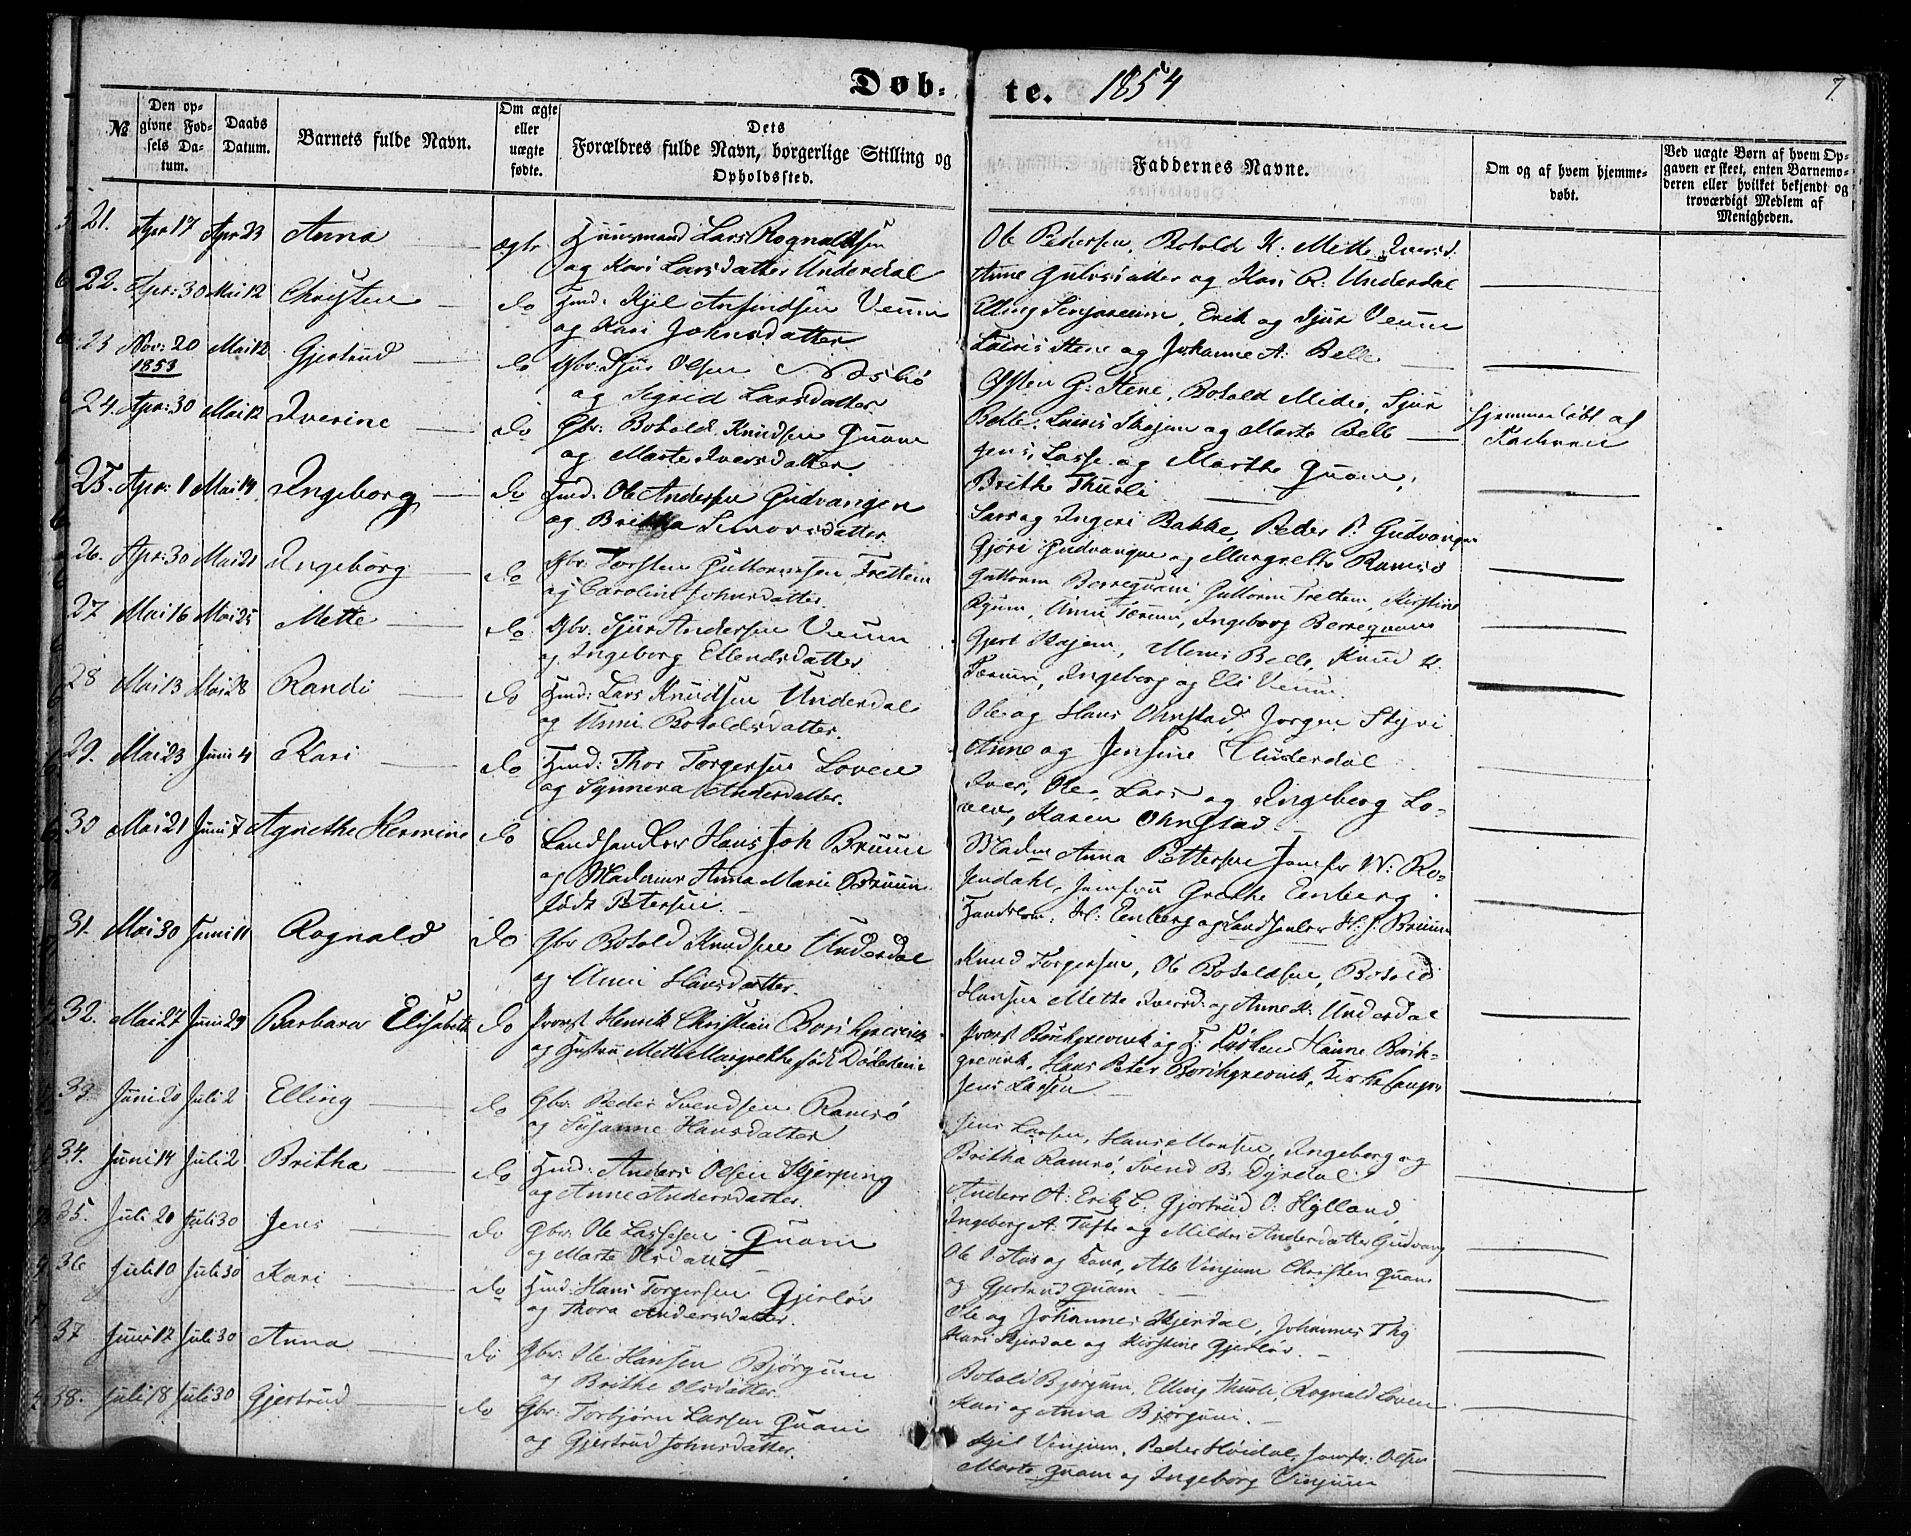 Døb- te. 1854
7
№
Den opgivne Fødsels Datum.
Daabs Datum.
Barnets fulde Navn.
Om ægte eller uægte fødte.
Dets Forældres fulde Navn, borgerlige Stilling og Opholdssted.
Faddernes Navne.
Om og af hvem hjemmedøbt.
Ved uægte Børn af hvem Opgaven er skeet, enten Barnemoderen eller hvilket bekjendt og troværdigt Medlem af Menigheden.
21. Apr 17 Apr 23 Anna ægte Huusmand Lars Rognaldsen
og Kari Larsdatter Underdal
Ole Pedersen, Botold K. Mette Iversd.
Anne og Kari R. Underdal
22. Apr: 30 Mai 12 Christen do Hmd: Kjel Ansindsen Venum
og Kari Johnsdatter
Elling Sinjarheim, Erik og Sjur Venum
Stene og Johanne A. Belle
23 Nov: 20 1853 Mai 12 Gjertrud do Gbr: Sjur Olsen Næsbø
og Sigrid Larsdatter
Østen G. Stene, Botold Midie, Sjur
Belle, Skajem og Marte Belle
24. Apr: 30 Mai 12 Iverine do Gbr: Botold Knudsen Quam
og Marte Iversdatter.
Jens, Lasse og Marthe Quam,
Brithe Thurli
Hjemmedøbt af
Faderen
25. Apr: 1 Mai 14 Ingeborg do Hmd: Ole Andersen Gudvangen
og Britha Simonsdatter.
Lars og Ingeri Bakke, Peder P. Gudvangen
Gjøri Gudvangen og Margrethe Ramsø
26. Apr: 30 Mai 21 Ingeborg do Gbr: Torsten Guttormsen Fretteim
og Caroline Johnsdatter.
Guttorm Berrequam, Guttorm Frettem, Kirstine
Ryum, Anna Tærum, Ingeborg Berrequam
27 Mai 16 Mai 25 Mette do Gbr. Sjur Andersen Venum
og Ingeborg Ellendsdatter
Gjert Skajem, Mons Belle, Knud K.
Tærum, Ingeborg og Eli Venum.
28 Mai 13 Mai 28 Randi do Hmd: Lars Knudsen Underdal
og Anni Botoldsdatter.
Ole og Hans Ohnstad, Jørgen Styvi
Anne og Jensine Underdal
29. Mai 23 Juni 4 Kari do Hmd: Thor Torgersen Loven
og Synneva Andersdatter.
Iver, Ole, Lars og Ingeborg Loven, Karen Ohnstad
30 Mai 21 Juni 7 Agnethe Hermine do Landhandler Hans Joh Bruun
og Madame Anna Marie Bruun
født Petersen.
Madm Anna Pettersen Jomfr W: Rosendahl, Jomfru Grethe Eenberg
H: Eenberg og Landhanler H. J. Bruun
31. Mai 30 Juni 11 Rognald do Gbr Botold Knudsen Underdal
og Anni Hansdatter.
Knud Torgersen, Ole Botoldsen, Botold
Hansen Mette Iversd. og Anne K. Underdal
32. Mai 27 Juni 29 Barbara Elisabeth do Provst Henrik Christian Borchgrevink
og Hustru Mette Margrethe født Dødelein
Provst Borchgrevink og Hanne Borchgrevink, Hans Peter Borchgrevink, Kirkesanger
Jens Larsen
33. Juni 20 Juli 2 Elling do Gbr: Peder Svendsen Ramsø
og Susanne Hansdatter
Jens Larsen, Hans Monsen, Ingeborg og
Britha Ramsø, Svend B. Dyrdal.
34. Juni 14 Juli 2 Britha do Hmd: Anders Olsen Skjerping
og Anne Andersdatter.
Anders A: Erik C. Gjertrud O. Hylland,
Ingeborg A. Tufte og Mildri Andersdatter Gudvang
35. Juli 20 Juli 30 Jens do Gbr. Ole Lassesen Quam
og Marte Olsdatter
Ole O Aas og Kone, Atle Vinjum Christen Quam
og Gjertrud Quam
36 Juli 10 Juli 30 Kari do Hmd: Hans Torgersen Gjerløv
og Thora Andersdatter.
Ole og Johannes Skjerdal, Johannes Thy
Kari Skjerdal og Kirstine Gjerløv.
37 Juni 17 Juli 30 Anna do Gbr. Ole Hansen Bjørgum
og Brithe Olsdatter.
Botold Bjørgum, Elling Thurli, Rognald Loven
Kari og Anna Bjørgum.
38. Juli 18 Juli 30 Gjertrud do Gbr. Torbjørn Lassen Quam
og Gjertrud Johnsdatter.
Kjel Vinjum, Peder Høidal, Jomfr: Olsen
Marte Quam og Ingeborg Vinjum